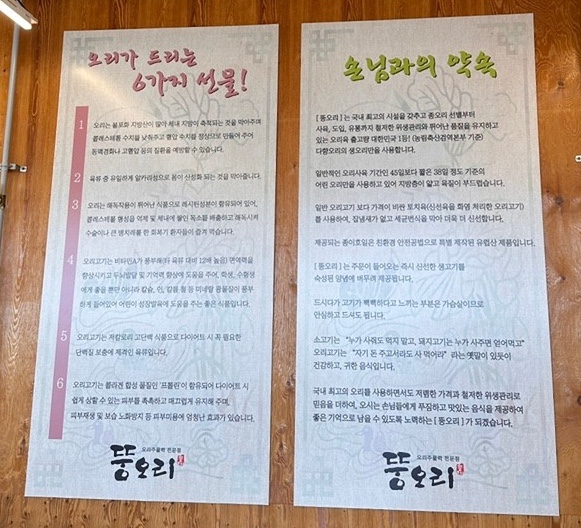 오리가 드리는
6가지 선물!
1
오리는 불포화 지방산이 많아 체내 지방이 축적되는 것을 막아주며
콜레스테롤 수치를 낮춰주고 혈압 수치를 정상으로 만들어 주어
동맥경화나 고혈압 등의 질환을 예방할 수 있습니다.
2
육류 중 유일하게 알카리성으로 몸이 산성화 되는 것을 막아줍니다.
3
오리는 해독작용이 뛰어난 식품으로 레시틴성분이 함유되어 있어,
콜레스테롤 형성을 억제 및 체내에 쌓인 독소를 배출하고 해독시켜
수술이나 큰 병치레를 한 회복기 환자들이 즐겨 먹습니다.
4
오리고기는 비타민A가 풍부해(타 육류 대비 12배 높음) 면역력을
향상시키고 두뇌발달 및 기억력 향상에 도움을 주어, 학생, 수험생
에게 좋을 뿐만 아니라 칼슘, 인, 칼륨 철 등 미네랄 광물질이 풍부
하게 들어있어 어린이 성장발육에 도움을 주는 좋은 식품입니다.
5
오리고기는 저칼로리 고단백 식품으로 다이어트 시 꼭 필요한
단백질 보충에 제격인 육류입니다.
6
오리고기는 콜라겐 합성 물질인 '프롤린'이 함유되어 다이어트 시
쉽게 상할 수 있는 피부를 촉촉하고 매끄럽게 유지해 주며,
피부재생 및 보습 노화방지 등 피부미용에 엄청난 효과가 있습니다.
오리주물럭 전문점
뚱오리
손님과의 약속
[ 뚱오리 ] 는 국내 최고의 시설을 갖추고 종오리 선별부터
사육, 도입, 유통까지 철저한 위생관리와 뛰어난 품질을 유지하고
있는 오리육 출고량 대한민국 1등! (농림축산검역본부 기준)
다향오리의 생오리만을 사용합니다.
일반적인 오리사육 기간인 45일보다 짧은 38일 정도 기준의
어린 오리만을 사용하고 있어 지방층이 얇고 육질이 부드럽습니다.
일반 오리고기 보다 가격이 비싼 토치육(신선육을 화염 처리한 오리고기)
를 사용하여, 잡냄새가 없고 세균번식을 막아 더욱 더 신선합니다.
제공되는 종이호일은 친환경 안전공법으로 특별 제작된 유럽산 제품입니다.
[ 뚱오리 ] 는 주문이 들어오는 즉시 신선한 생고기를
숙성된 양념에 버무려 제공됩니다.
드시다가 고기가 빽빽하다고 느끼는 부분은 가슴살이므로
안심하고 드셔도 됩니다.
소고기는 "누가 사줘도 먹지 말고, 돼지고기는 누가 사주면 얻어먹고"
오리고기는 "자기 돈 주고서라도 사 먹어라" 라는 옛말이 있듯이
건강하고, 귀한 음식입니다.
국내 최고의 오리를 사용하면서도 저렴한 가격과 철저한 위생관리로
믿음을 더하여, 오시는 손님들에게 푸짐하고 맛있는 음식을 제공하여
좋은 기억으로 남을 수 있도록 노력하는 [ 뚱오리 ] 가 되겠습니다.
오리주물럭 전문점
뚱오리